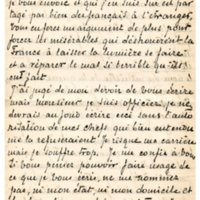 je vous envoie et qui j'en suis sur est par
tagé par bien des français à l'étranger,
vous aurez un argument de plus pour
forcer les misérables qui déshonorent la
France à laisser la lumière se faire
et à réparer le mal si terrible qu'ils
ont fait.
J'ai jugé de mon devoir de vous écrire
mais monsieur je suis officier. je ne
devrais au jour écrire ceci sans l'auto
risation de mes chefs qui bien entendu
me la refuseraient. Je risque ma carrière
mais je souffre trop. Je me confie à vous
Si vous pensez pouvoir faire usage de
ce que je vous écris, ne me nommez
pas, ni mon état, ni mon domicile et